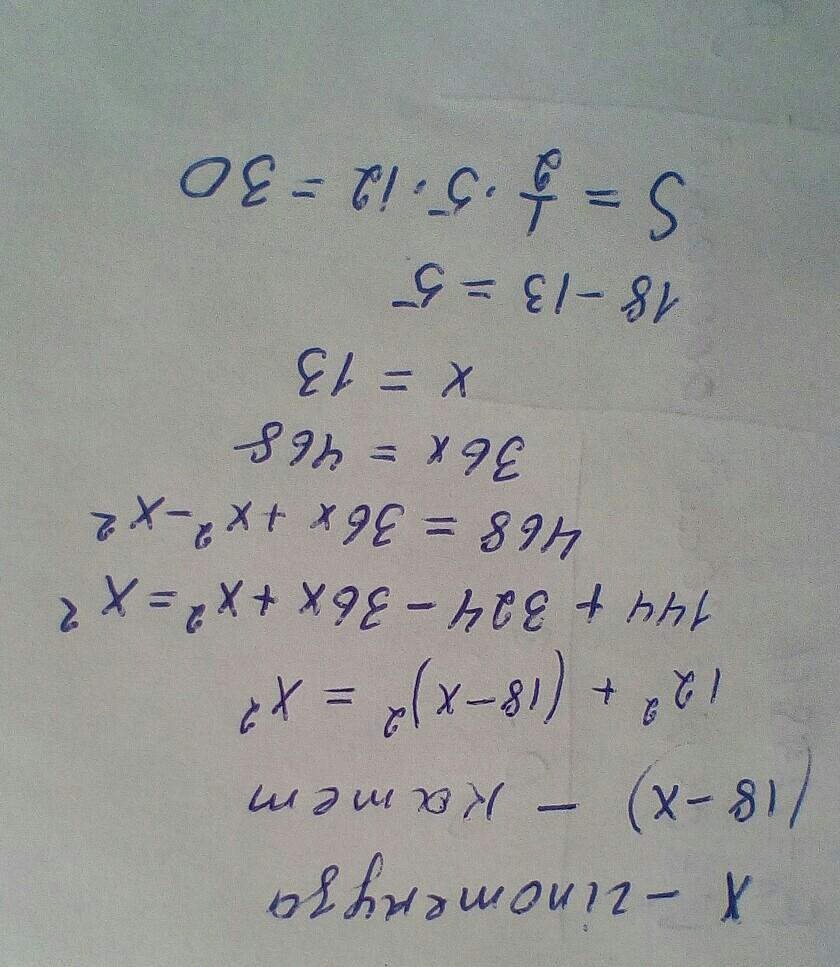 x - гіпотенуза
(18-x) - катет
12² + (18-x)² = x²
144 + 324 - 36x + x² = x²
468 = 36x + x² - x²
36x = 468
x = 13
18 - 13 = 5
S = 1/2 · 5 · 12 = 30